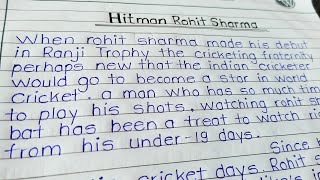 Hitman Rohit Sharma
When rohit sharma made his debut
in Ranji Trophy the cricketing fraternity
perhaps new that the indian cricketer
would go to become a star in world
Cricket. a man who has so much time
to play his shots. watching rohit
bat has been a treat to watch
from his under-19 days.
Since
cricket days. Rohit